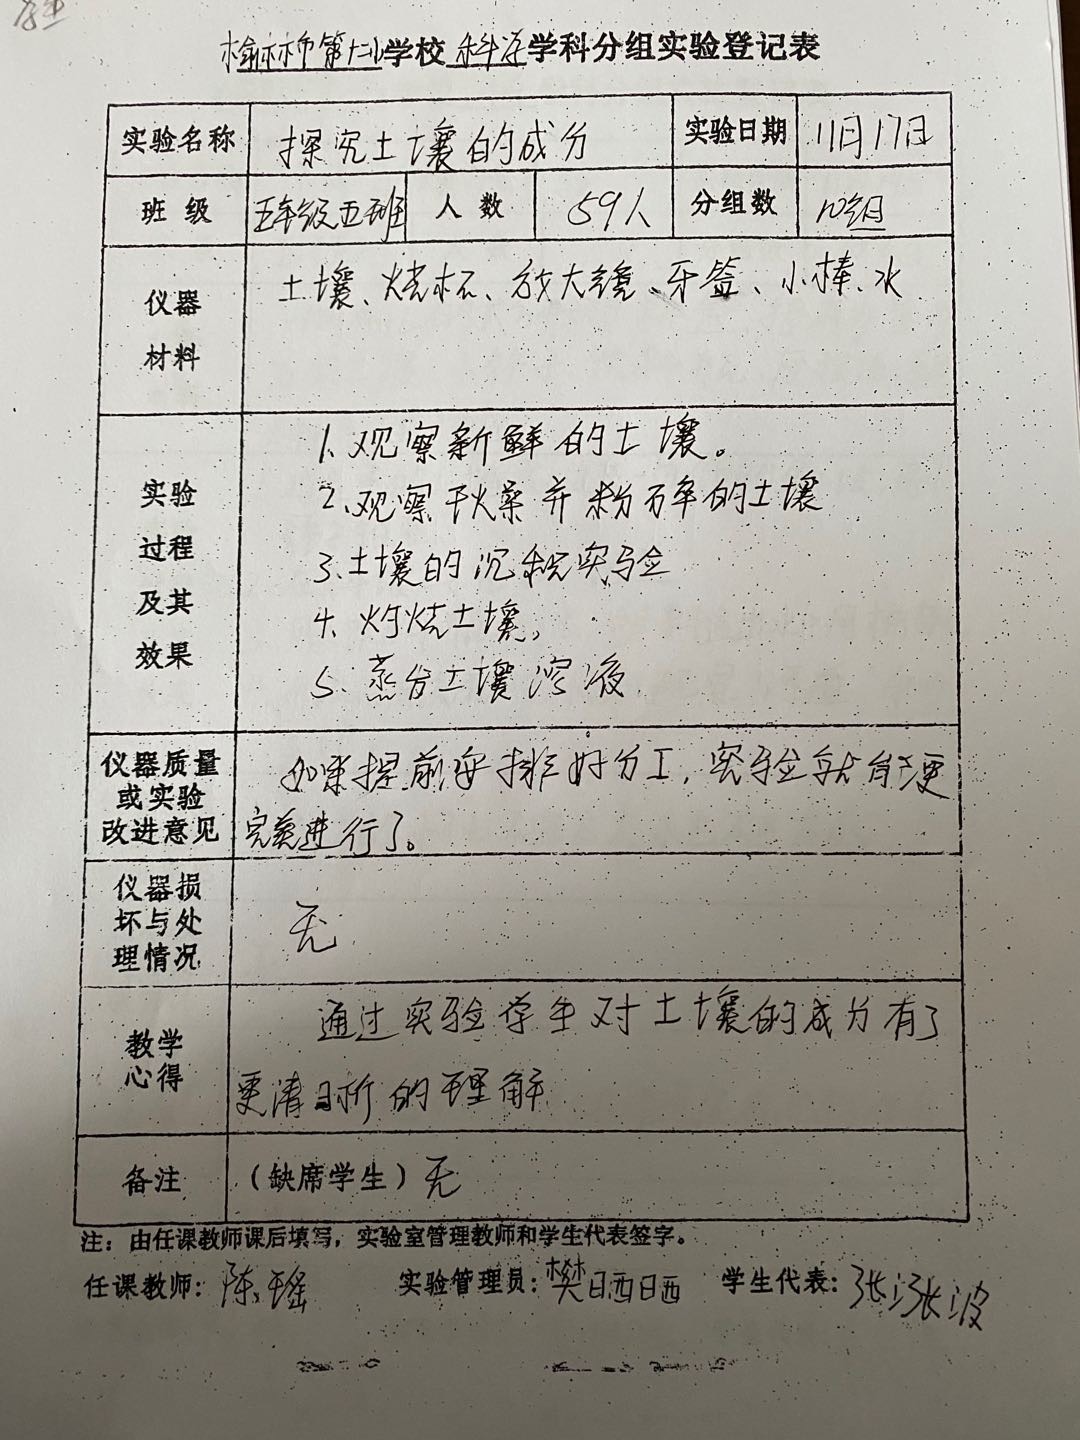 榆林市第十二小学校 科学 学科分组实验登记表
实验名称 探究土壤的成分 实验日期 11月17日
班级 五年级五班 人数 59人 分组数 10组
仪器
材料
土壤、烧杯、放大镜、牙签、小棒、水
实验
过程
及其
效果
1、观察新鲜的土壤。
2、观察干燥并粉碎的土壤
3、土壤的沉积实验
4、灼烧土壤,
5、蒸分土壤溶液
仪器质量
或实验
改进意见
如果提前安排好分工,实验就能更
完美进行了。
仪器损
坏与处
理情况
无
教学
心得
通过实验学生对土壤的成分有了
更清晰的理解
备注 (缺席学生)无
注:由任课教师课后填写,实验室管理教师和学生代表签字。
任课教师:陈瑶 实验管理员:樊晒晒 学生代表:张漲波